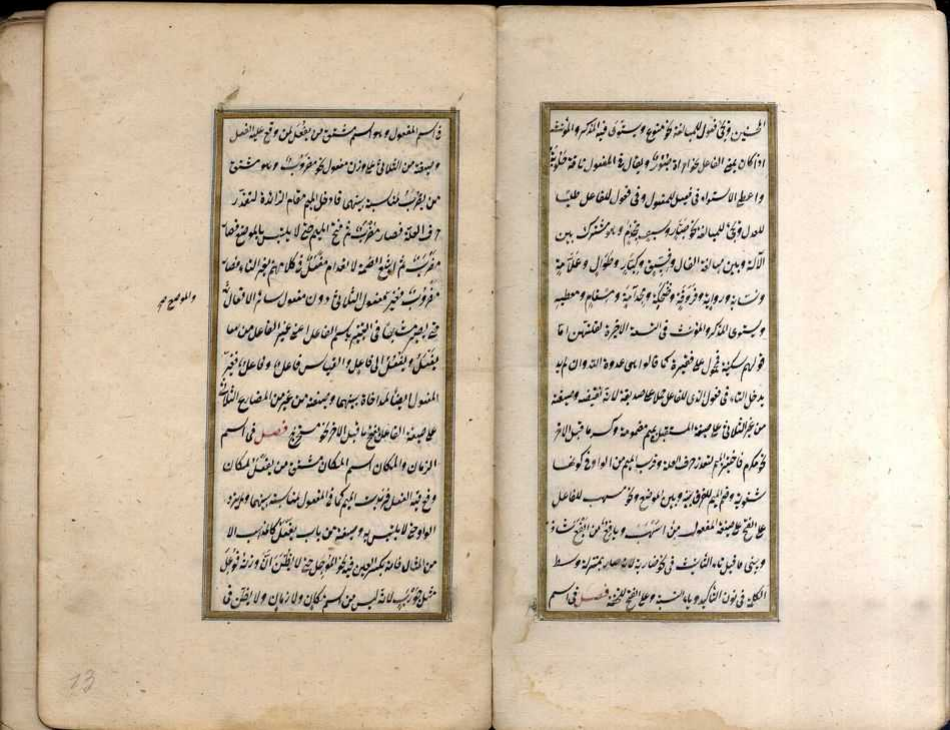 الجنين ويجئ فعول للمبالغة نحو منوع ويستوى فيه المذكر والمؤنث
اذا كان بمعنى الفاعل نحو امرأة صبور ويقال فى المفعول ناقة حلوبة
واعطى الاستواء فى فعيل للمفعول وفى فعول للفاعل طلبا
للعدل ويجئ للمبالغة نحو صبّار وسيف مجذم وهو مشترك بين
الآلة وبين مبالغة الفاعل وفسيق وكبّار وطوال وعلّامة
ونسّابة ورواية وفروقة وضحكة ومجذامة ومسقام ومعطير
ويستوى المذكر والمؤنث فى التسعة الاخيرة لقلتهن امّا
قولهم مسكينة فمحمول على فقيرة كما قالوا هى عدوة الله وان لم يد
يدخل التاء فى فعول الذى للفاعل حملا على صديقة لانه نقيضه وصيغته
من غير الثلاثى على صيغة المستقبل بميم مضمومة وكسر ما قبل الاخر
نحو مكرم فاختير الميم لتعذر حرف العلة وقرب الميم من الواو فى كونهما
شفوية وضم الميم للفرق بينه وبين الموضع ونحو مسهب للفاعل
على الفتح على صيغة المفعول من اسهب ويافع من ايفع شاذ
ويبنى ما قبل تاء التأنيث فى نحو ضاربة لانه صار بمنزلة وسط
الكلمة فى نون التأكيد وياء النسبة وعلى الفتح للخفة فصل فى اسم
فى اسم المفعول وهو اسم مشتق من يفعل لمن وقع عليه الفعل
وصيغته من الثلاثى على وزن مفعول نحو مضروب وهو مشتق
من يضرب لمناسبة بينهما فادخل الميم مقام الزائدة لتعذر
حرف العلة فصار مضرب ثم فتح الميم حتى لا يلتبس بالموضع فصا
مضرب ثم اشبع الضمة لانعدام مفعل فى كلامهم بغير التاء فصار
مضروب فغير مفعول الثلاثى دون مفعول سائر الافعال
حتى يصير مشابها فى التغيير باسم الفاعل اعنى غير الفاعل من يفعل
يفعل ويفعل الى فاعل والقياس فاعل وفاعل فغير
المفعول ايضا لمواخاة بينهما وصيغته من غير من المضارع الثلاثى
على صيغة الفاعل بفتح ما قبل الاخر نحو مستخرج فصل فى اسم
الزمان والمكان اسم المكان مشتق من يفعل لمكان
وقع فيه الفعل فزيدت الميم كما فى المفعول لمناسبة بينهما ولم يزد
الواو حتى لا يلتبس به وصيغته من باب يفعل كالمذهب الا
من المثال فانه بكسر العين فيه نحو الموجل حتى لا يظن ان وزنه فوعل
مثل جورب لانه ليس من اسم مكان ولا زمان ولا يظن فى
والموضع صح
13